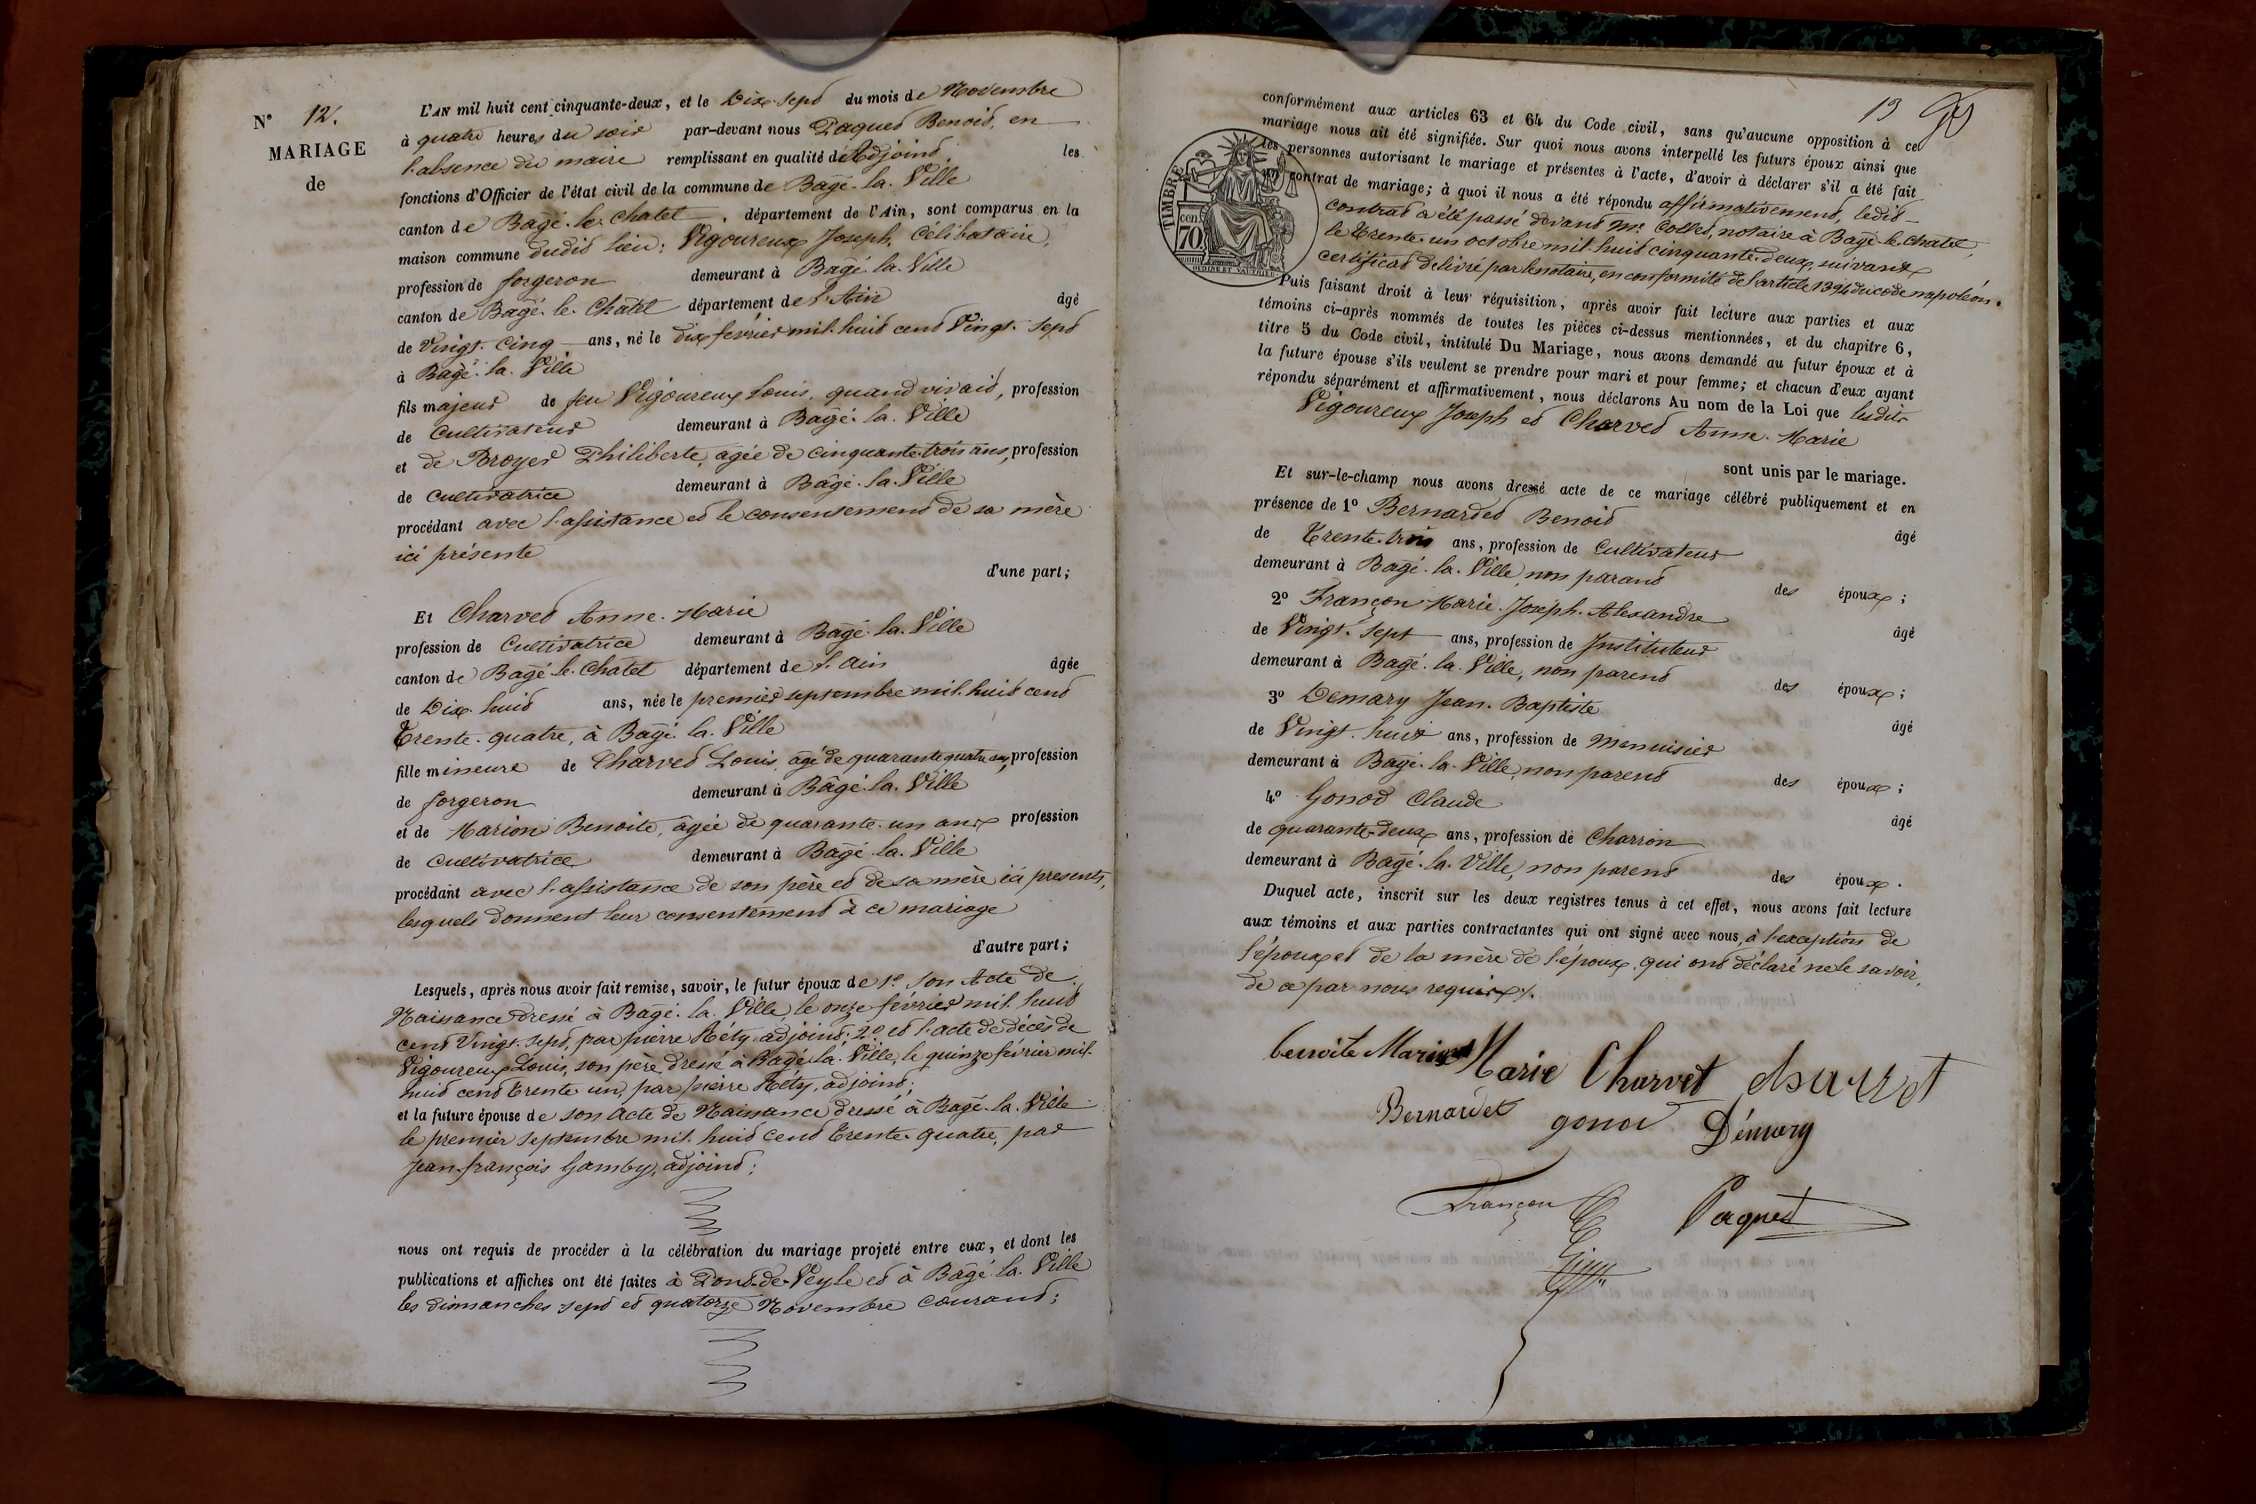 N° 12.
MARIAGE
de
L'AN mil huit cent cinquante-deux, et le Dix-Sept du mois de Novembre
à quatre heures du soir par-devant nous Paquet Benoit, en
l'absence du maire remplissant en qualité d'Adjoint les
fonctions d'Officier de l'état civil de la commune de Bâgé-la-Ville
canton de Bâgé-le-Chatel, département de l'Ain, sont comparus en la
maison commune dudit lieu: Vigoureux Joseph, Célibataire,
profession de forgeron demeurant à Bâgé-la-Ville
canton de Bâgé-le-Chatel département de l'Ain âgé
de Vingt-Cinq ans, né le dix février mil huit cent Vingt-Sept
à Bâgé-la-Ville
fils majeur de feu Vigoureux Louis, quand vivait, profession
de Cultivateur demeurant à Bâgé-la-Ville
et de Broyer Philiberte, agée de cinquante-trois ans, profession
de Cultivatrice demeurant à Bâgé-la-Ville
procédant avec l'assistance et le consentement de sa mère
ici présente
d'une part;
Et Charvet Anne-Marie
profession de Cultivatrice demeurant à Bâgé-la-Ville
canton de Bâgé-le-Chatel département de l'ain âgée
de Dix-huit ans, née le premier septembre mil huit cent
Trente-quatre, à Bâgé-la-Ville
fille mineure de Charvet Louis, âgé de quarante quatre ans, profession
de forgeron demeurant à Bâgé-la-Ville
et de Marion Benoite, âgée de quarante-un ans profession
de Cultivatrice demeurant à Bâgé-la-Ville
procédant avec l'assistance de son père et de sa mère ici presents,
lesquels donnent leur consentement à ce mariage
d'autre part;
Lesquels, après nous avoir fait remise, savoir, le futur époux de 1° son Acte de
Naissance dressé à Bâgé-la-Ville, le onze février mil huit
cent Vingt-Sept, par pierre Réty adjoint; 2° et l'acte de décès de
Vigoureux Louis, son père dressé à Bâgé-la-Ville, le quinze février mil
huit cent trente un, par pierre Réty, adjoint;
et la future épouse de son Acte de Naissance dressé à Bâgé-la-Ville
le premier septembre mil huit cent trente-quatre, par
Jean-françois Gamby, adjoint;
nous ont requis de procéder à la célébration du mariage projeté entre eux, et dont les
publications et affiches ont été faites à Pont-de-Veyle et à Bâgé-la-Ville
les dimanches sept et quatorze Novembre courant;
13
conformément aux articles 63 et 64 du Code civil, sans qu'aucune opposition à ce
mariage nous ait été signifiée. Sur quoi nous avons interpellé les futurs époux ainsi que
les personnes autorisant le mariage et présentes à l'acte, d'avoir à déclarer s'il a été fait
un contrat de mariage; à quoi il nous a été répondu affirmativement, ledit
Contrat a été passé devant Mr. Collet, notaire à Bâgé-le-Chatel,
le trente-un octobre mil huit cinquante-deux, suivant
certificat délivré par le notaire, en conformité de l'article 1394 du code napoléon.
TIMBRE
70 cen
Puis faisant droit à leur réquisition, après avoir fait lecture aux parties et aux
témoins ci-après nommés de toutes les pièces ci-dessus mentionnées, et du chapitre 6,
titre 5 du Code civil, intitulé Du Mariage, nous avons demandé au futur époux et à
la future épouse s'ils veulent se prendre pour mari et pour femme; et chacun d'eux ayant
répondu séparément et affirmativement, nous déclarons Au nom de la Loi que ledit
Vigoureux Joseph et Charvet Anne-Marie
sont unis par le mariage.
Et sur-le-champ nous avons dressé acte de ce mariage célébré publiquement et en
présence de 1° Bernardet Benoit âgé
de Trente-trois ans, profession de Cultivateur
demeurant à Bâgé-la-Ville, non parant des époux;
2° Françon Marie-Joseph-Alexandre âgé
de Vingt-Sept ans, profession de Instituteur
demeurant à Bâgé-la-Ville, non parent des époux;
3° Demary Jean-Baptiste âgé
de Vingt-huit ans, profession de Menuisier
demeurant à Bâgé-la-Ville, non parent des époux;
4° Gonod Claude âgé
de quarante-deux ans, profession de Charron
demeurant à Bâgé-la-Ville, non parent des époux.
Duquel acte, inscrit sur les deux registres tenus à cet effet, nous avons fait lecture
aux témoins et aux parties contractantes qui ont signé avec nous, à l'exception de
l'époux et de la mère de l'époux qui ont déclaré ne le savoir,
de ce par nous requis.
benoite Marion Marie Charvet charvet
Bernardet gonod Démary
Françon Paquet